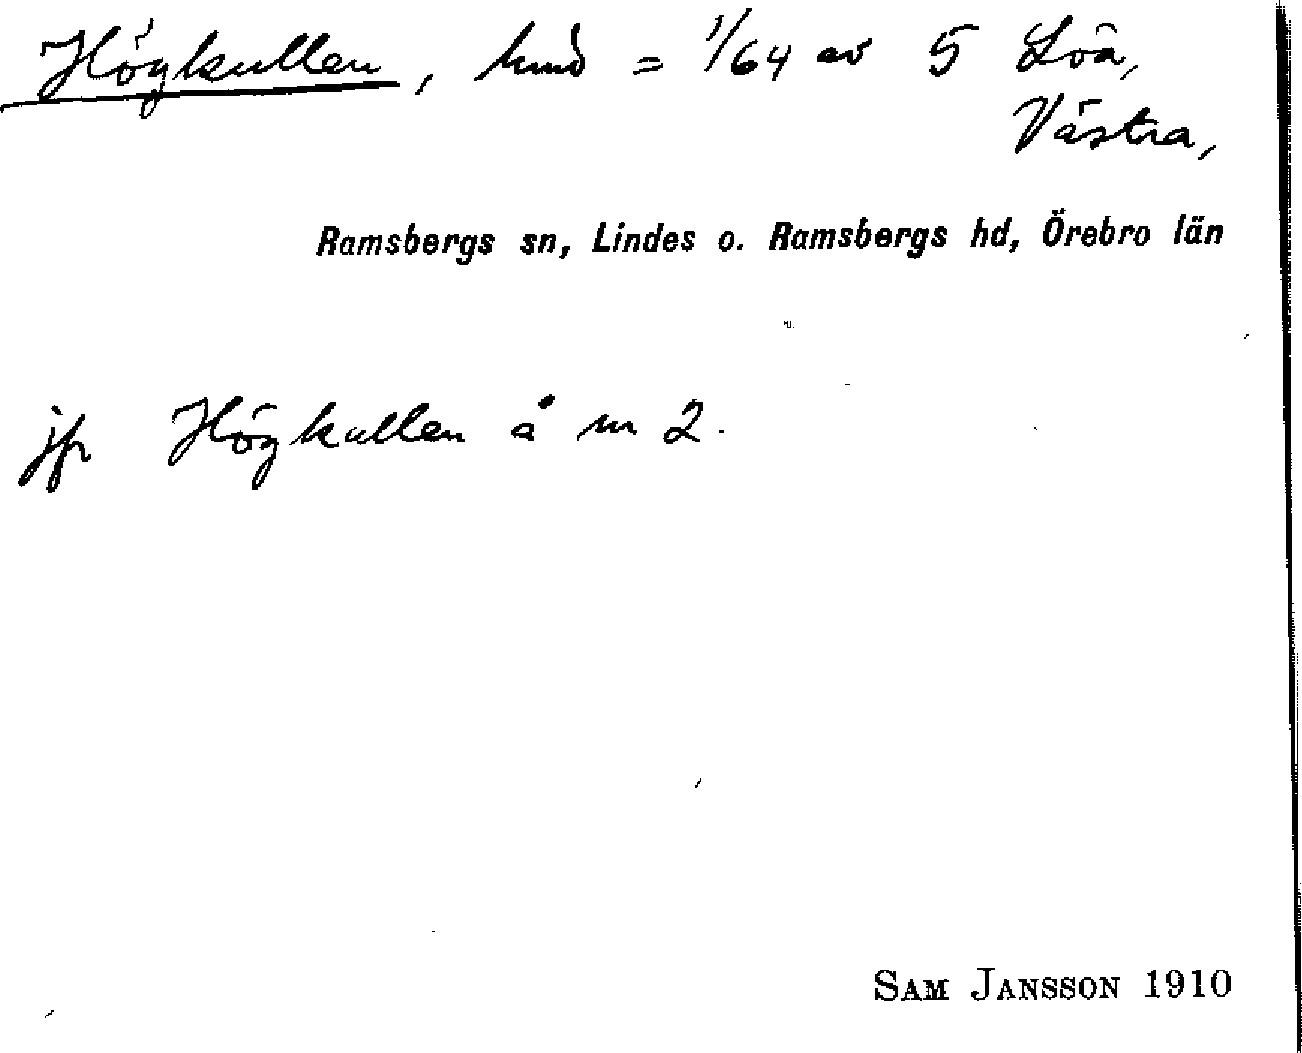 Högkullen, hmd = 1/64 av 5 Löa,
Västra,
Ramsbergs sn, Lindes o. Ramsbergs hd, Örebro län
jfr Högkullen å m 2.
SAM JANSSON 1910